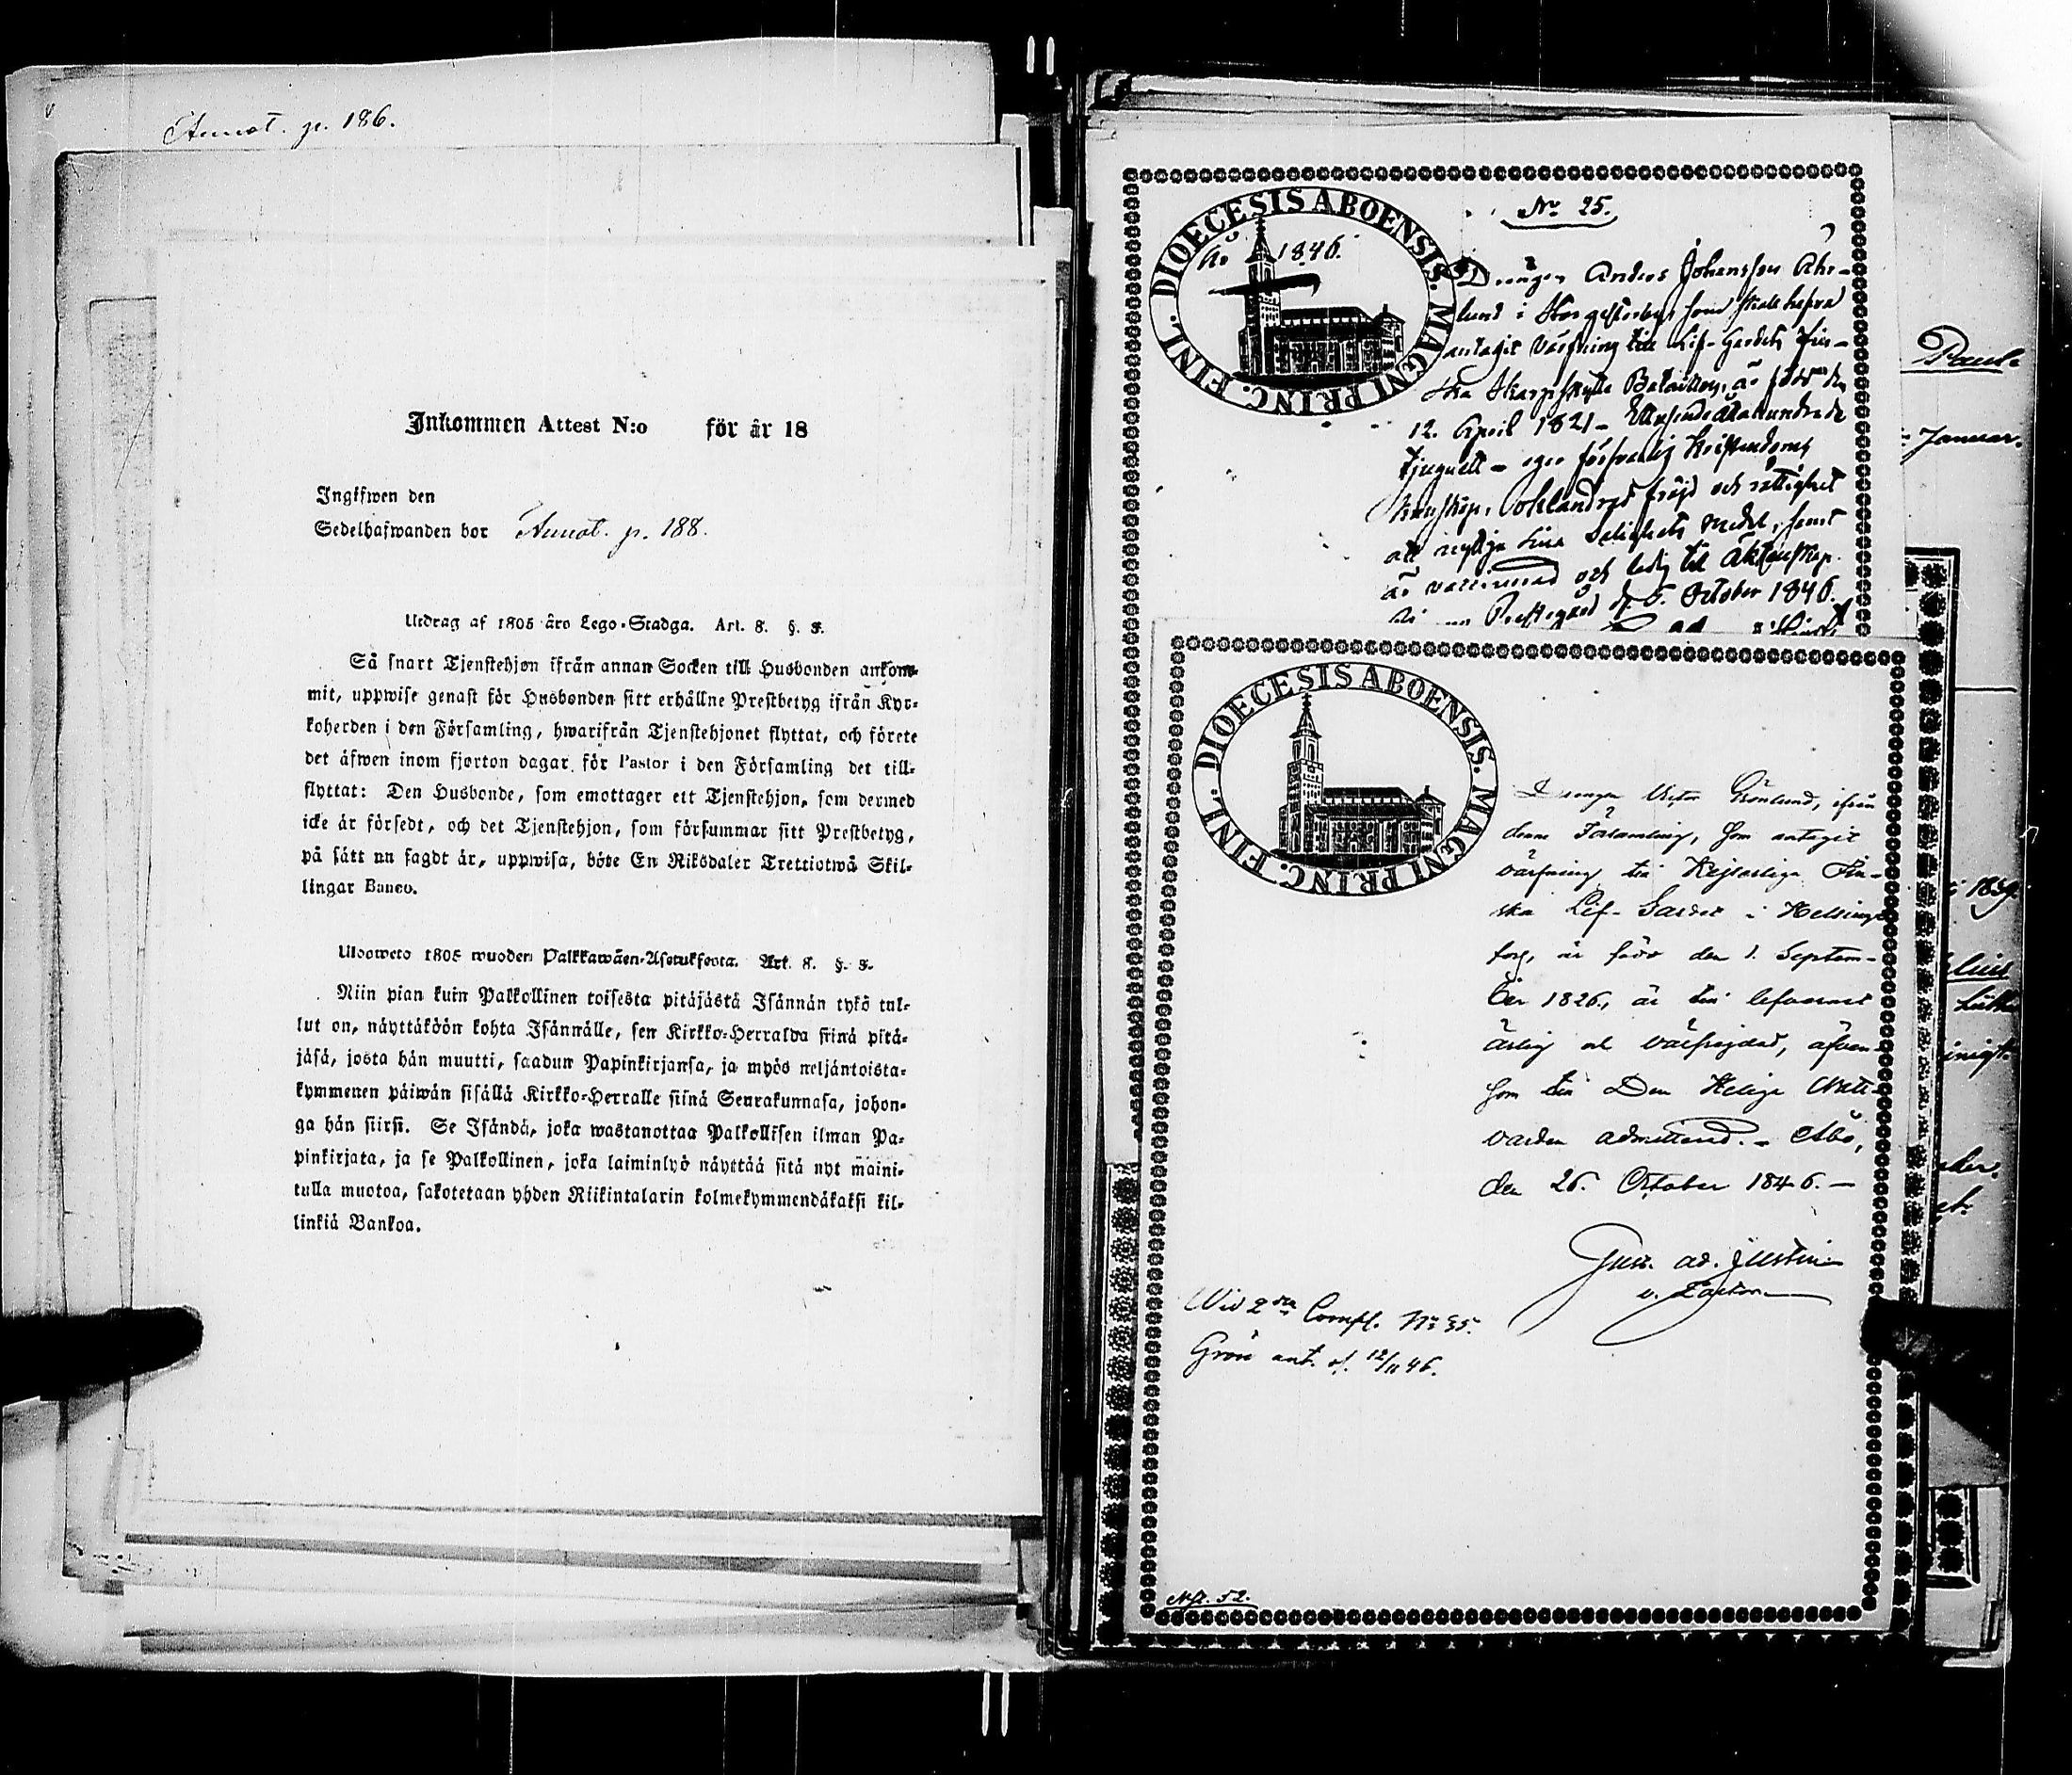 Annot. p. 186.
Inkommen Attest N:o för år 18
Ingifwen den
Sedelhafwanden bor Annot. p. 188.
Utdrag af 1805 års Lego-Stadga. Art. 8. §. 3.
Så snart Tjenstehjon ifrån annan Socken till Husbonden ankom-
mit, uppwise genast för Husbonden sitt erhållne Prestbetyg ifrån Kyr-
koherden i den Församling, hwarifrån Tjenstehjonet flyttat, och förete
det äfwen inom fjorton dagar för Pastor i den Församling det till-
flyttat: Den Husbonde, som emottager ett Tjenstehjon, som dermed
icke är försedt, och det Tjenstehjon, som försummar sitt Prestbetyg,
på sätt nu sagdt är, uppwisa, böte En Riksdaler Trettiotwå Skil-
lingar Banco.
Ulosweto 1805 wuoden Palkkawäen-Asetuksesta. Art. 8. §. 3.
Niin pian kuin Palkollinen toisesta pitäjästä Isännän tykö tul-
lut on, näyttäköön kohta Isännälle, sen Kirkko-Herralda siinä pitä-
jäsä, josta hän muutti, saadun Papinkirjansa, ja myös neljäntoista-
kymmenen päiwän sisällä Kirkko-Herralle siinä Seurakunnasa, johon-
ga hän siirsi. Se Isändä, joka wastanottaa Palkollisen ilman Pa-
pinkirjata, ja se Palkollinen, joka laiminlyö näyttää sitä nyt maini-
tulla muotoa, sakotetaan yhden Riikintalarin kolmekymmendäkaksi kil-
linkiä Bankoa.
DIOECESIS ABOENSIS. MAGNI PRINC. FINL.
År 1846.
No 25.
Drängen Anders Johansson Åhr-
lund i som skall hafva
antagit Värfning till Lif-Gardets Fin-
ska Skarpskytte Bataillon, är född den
12. April 1821 - Ettusendeåttahundrade
tjuguett - eger försvarlig Kristendoms
kunskap, oklandrad fräjd och rättighet
att nyttja sina Salighets medel, samt
är vaccinerad och ledig till Äktenskap.
Prestegård d. 5. October 1846.
DIOECESIS ABOENSIS. MAGNI PRINC. FINL.
Drengen Victor Grönlund, ifrån
denne Församling, som antagit
värfning till Kejserliga Fin-
ska Lif-Gardet i Helsing-
fors, är född den 1. Septem-
ber 1826, är till lefvernet
ärlig och välfrejdad, äfven-
som till Den Helige Natt-
varden admitterad. - Åbo,
den 26. October 1846. -
Gust. Ad.
v. Pastor
Wid 2dra Comp. No 35.
Grön ant. d. 12/11 46.
52.
Paul.
Januar.
1839.